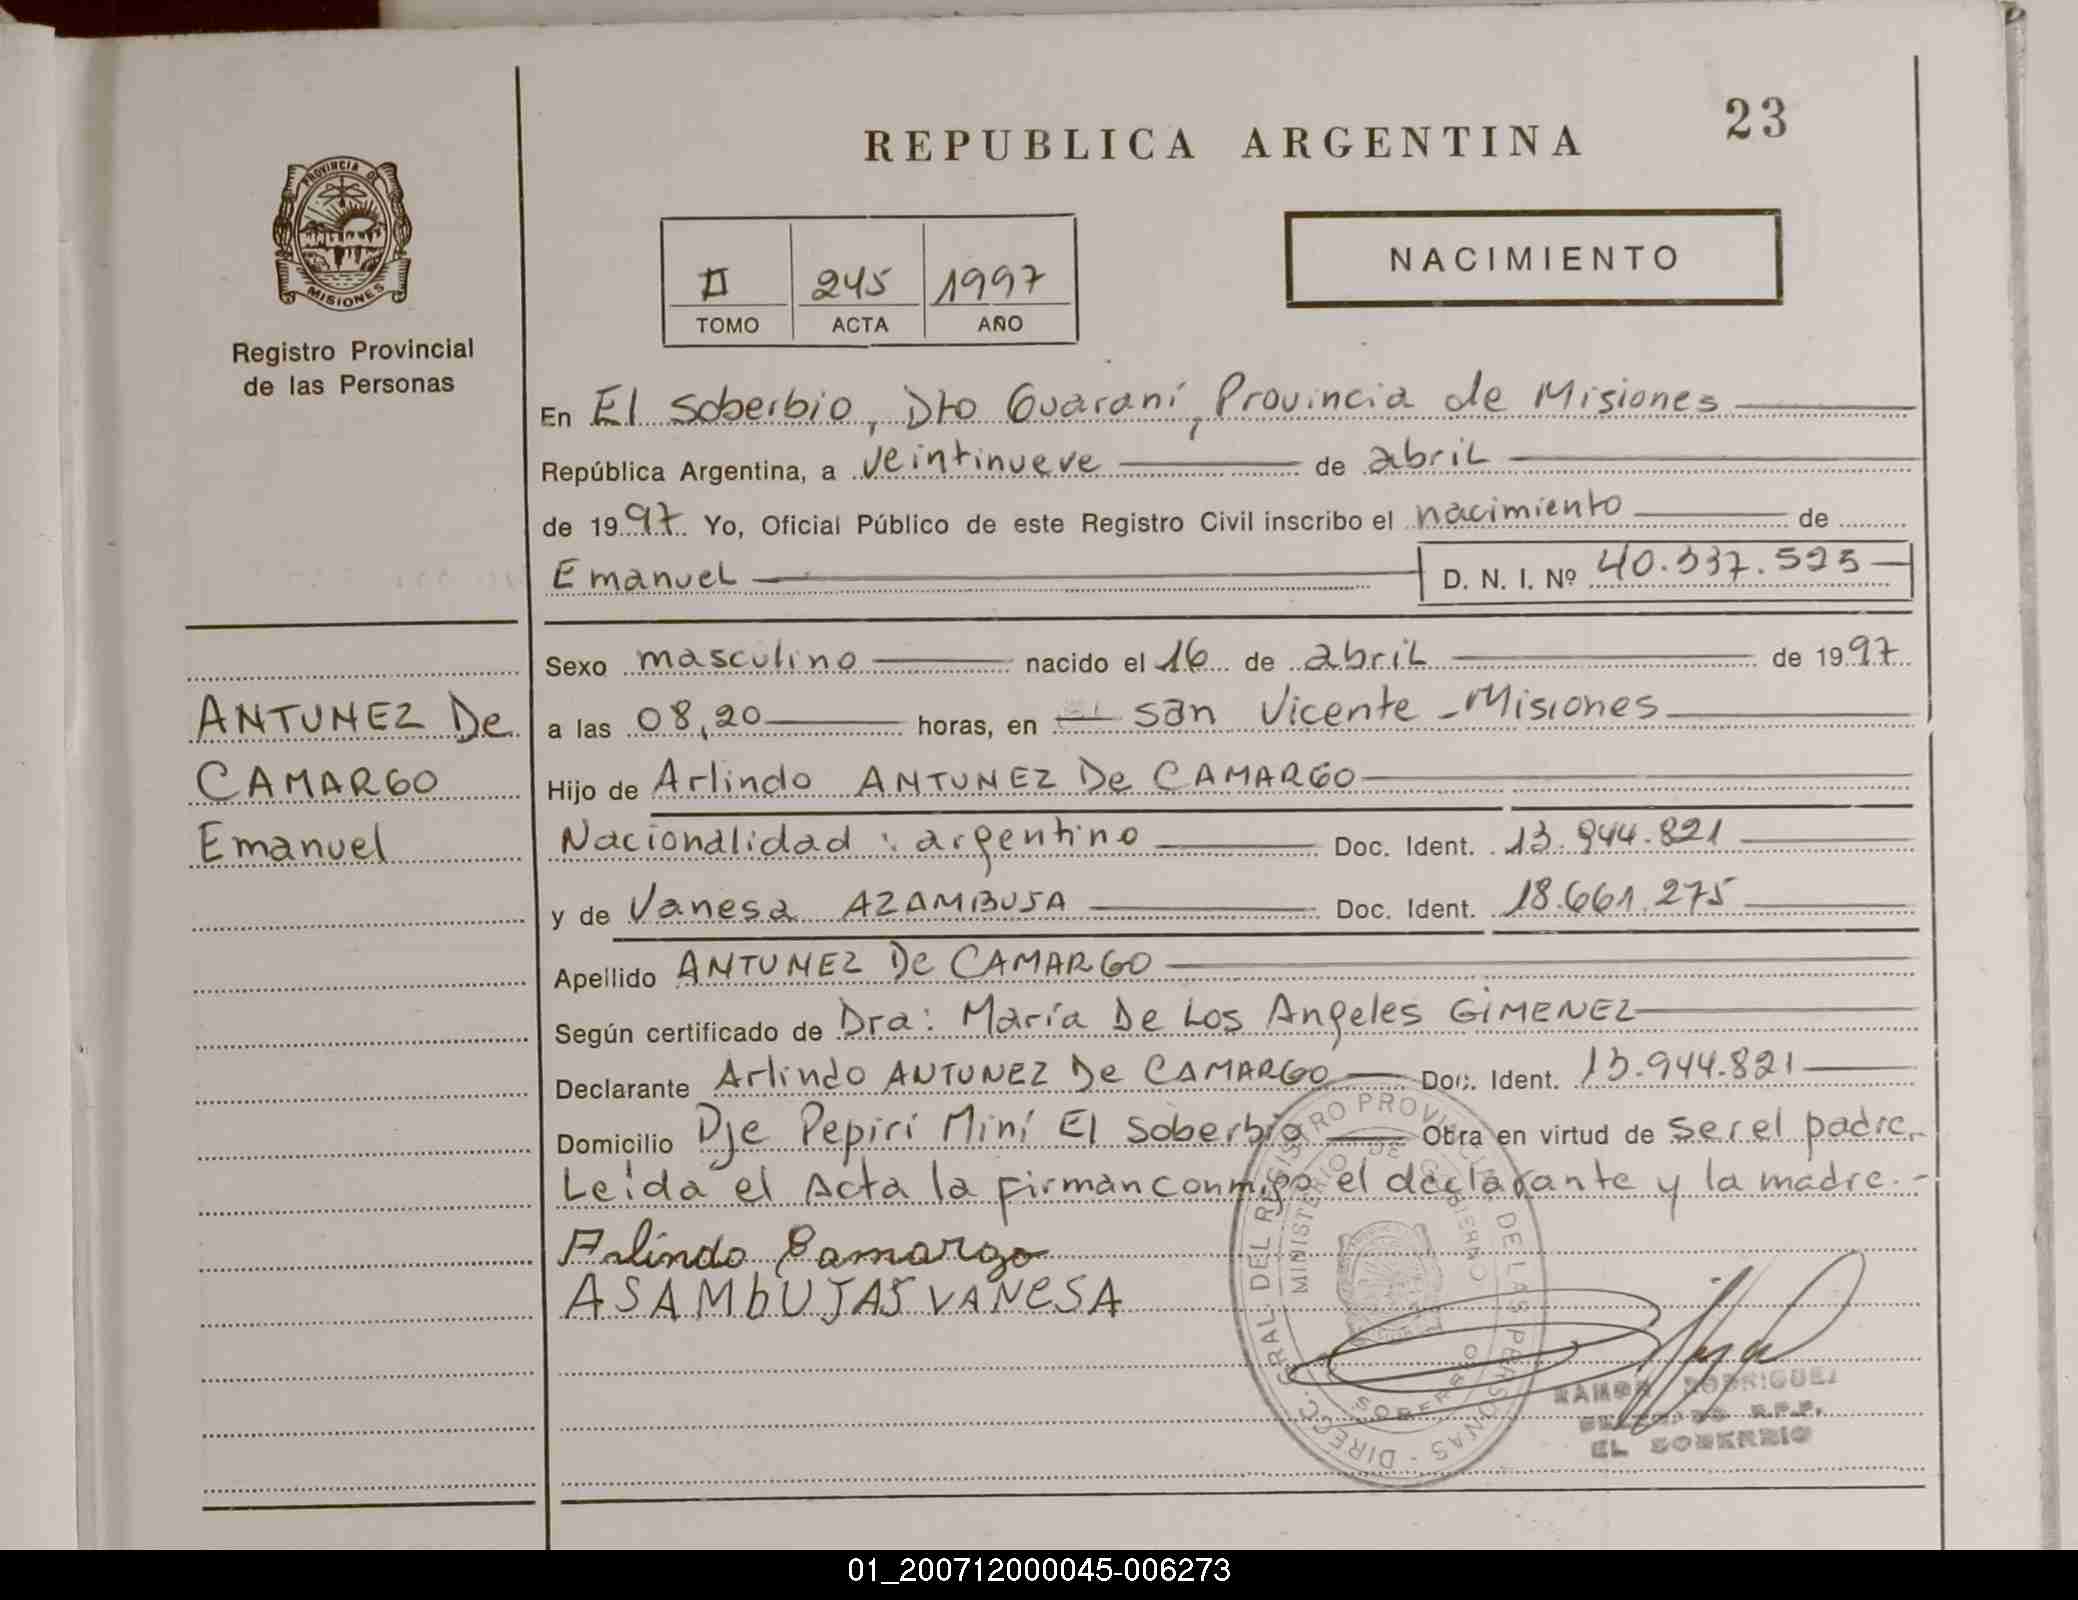 23
REPUBLICA ARGENTINA
PROVINCIA DE
MISIONES
Registro Provincial
de las Personas
NACIMIENTO
II 245 1997
TOMO ACTA AÑO
En El Soberbio, Dto Guaraní, Provincia de Misiones
República Argentina, a veintinueve de abril
de 1997 Yo, Oficial Público de este Registro Civil inscribo el nacimiento de
Emanuel D. N. I. Nº 40.337.525
Sexo masculino nacido el 16 de abril de 1997
a las 08,20 horas, en San Vicente - Misiones
ANTUNEZ De
CAMARGO
Emanuel
Hijo de Arlindo ANTUNEZ De CAMARGO
Nacionalidad : argentino Doc. Ident. 13.944.821
y de Vanesa AZAMBUJA Doc. Ident. 18.661.275
Apellido ANTUNEZ De CAMARGO
Según certificado de Dra: María De Los Angeles GIMENEZ
Declarante Arlindo ANTUNEZ De CAMARGO Doc. Ident. 13.944.821
Domicilio Dje Pepirí Miní El Soberbio Obra en virtud de ser el padre.
Leída el Acta la firman conmigo el declarante y la madre.-
Arlindo Camargo
ASAMbUJAS VANESA
DIRECC. GRAL DEL REGISTRO PROVINCIAL DE LAS PERSONAS -
MINISTERIO DE GOBIERNO
SOBERBIO
RAMON RODRIGUEZ
DELEGADO R.P.P.
EL SOBERBIO
01_200712000045-006273